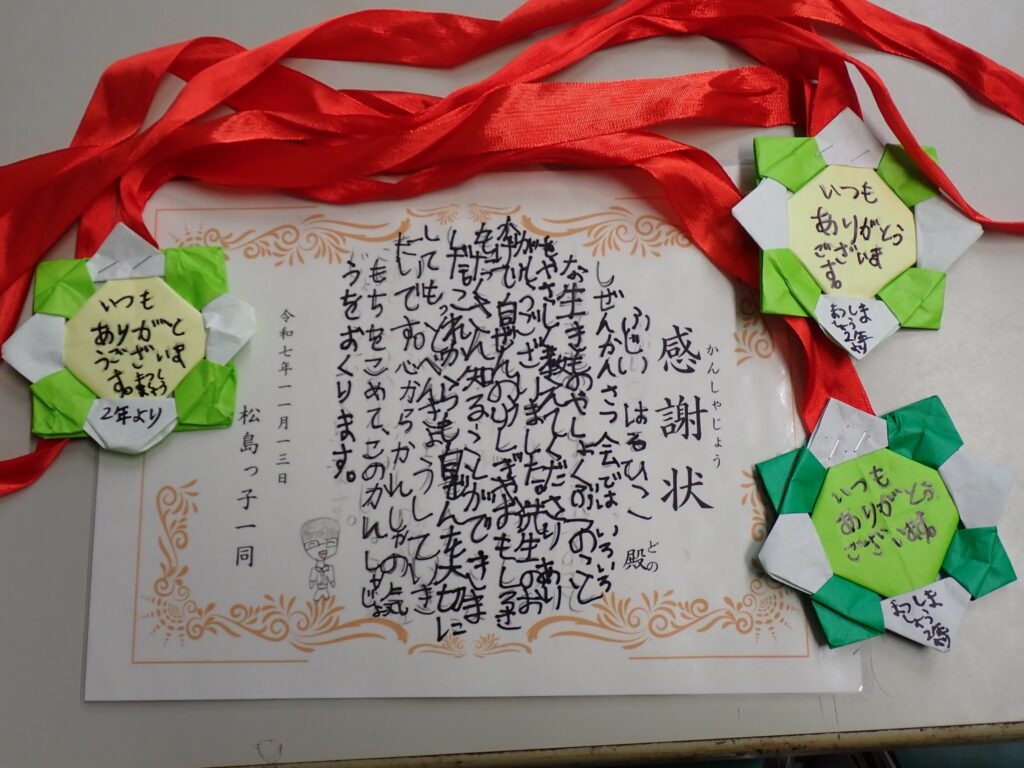 かんしゃじょう
感謝状
ふじい はるひこ 殿
との
しぜんかんさつ会では いろいろ
な生きものや しょくぶつのこと
をやさしく教えてくださり あり
がとうございました。先生のお
かげで自ぜんのふしぎやおもしろさ
をたくさん知ることができま
した。これからも自ぜんを大切に
してもっとべんきょうしていき
たいです。心からかんしゃの気
もちをこめて、このかんしゃじょ
うをおくります。
令和七年一一月一三日
松島っ子一同
いつも
ありがと
うござ
います。
2年より
いつも
ありがとう
ございます。
まつしま
しょう
2年より
いつも
ありがとう
ございます。
まつしま
しょう
2年より